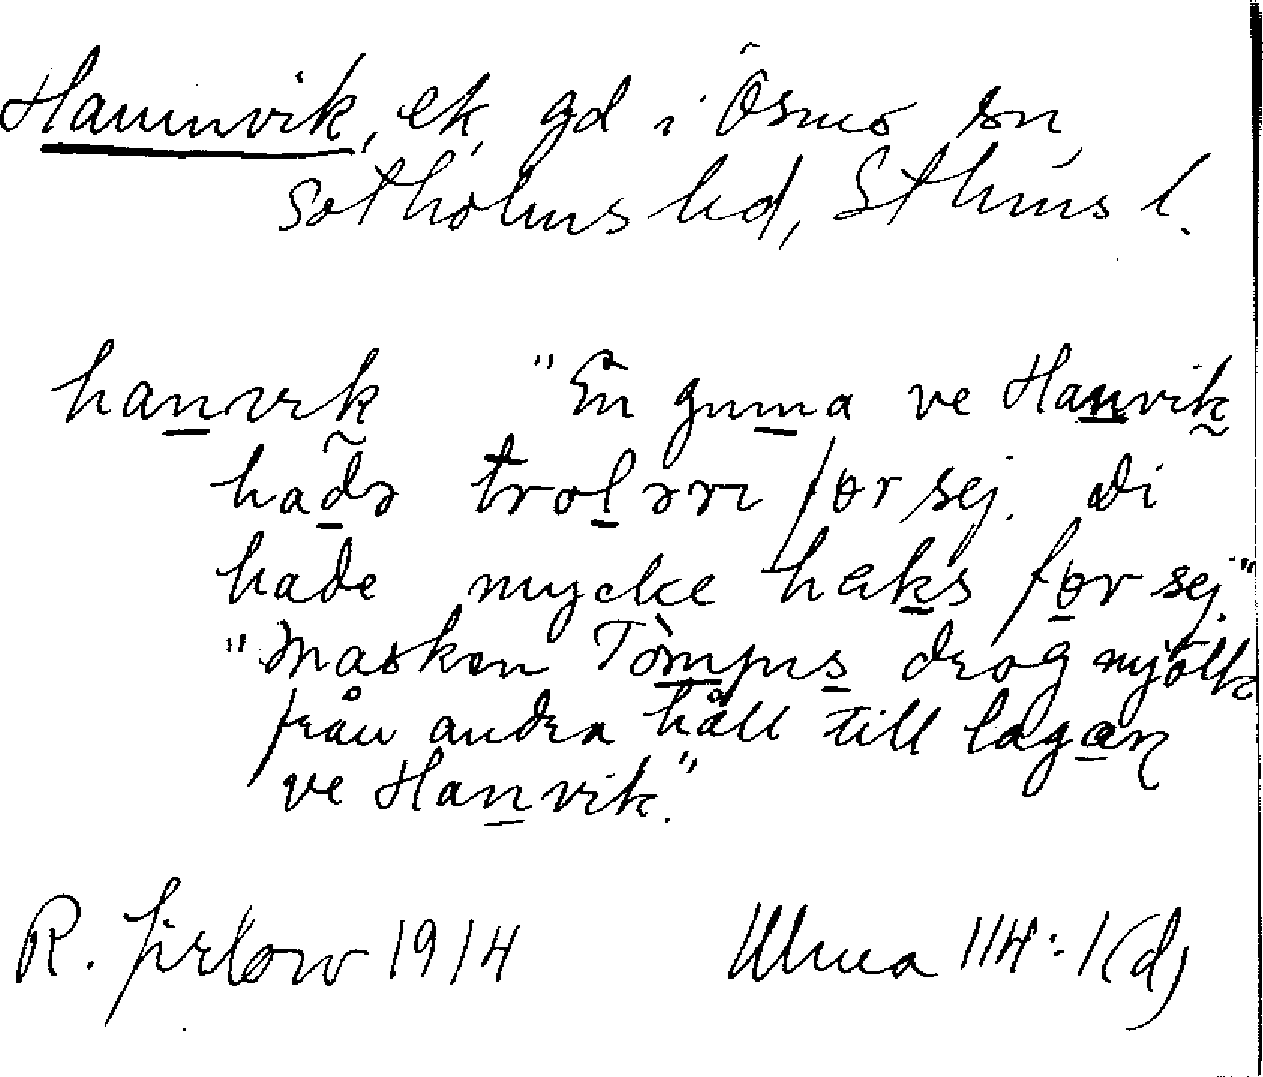 Hamnvik, ek, gd i Ösmo sn,
Sotholms hd, Sthms l.
hanvik "En gumma ve Hanvik
hadə trolɔri för sej. Di
hade mycke haks för sej."
"Masken Tòmpus drog mjölk
från andra håll till lagan
ve Hanvik."
R. Jirlow 1914 Ulma 114:1(d)